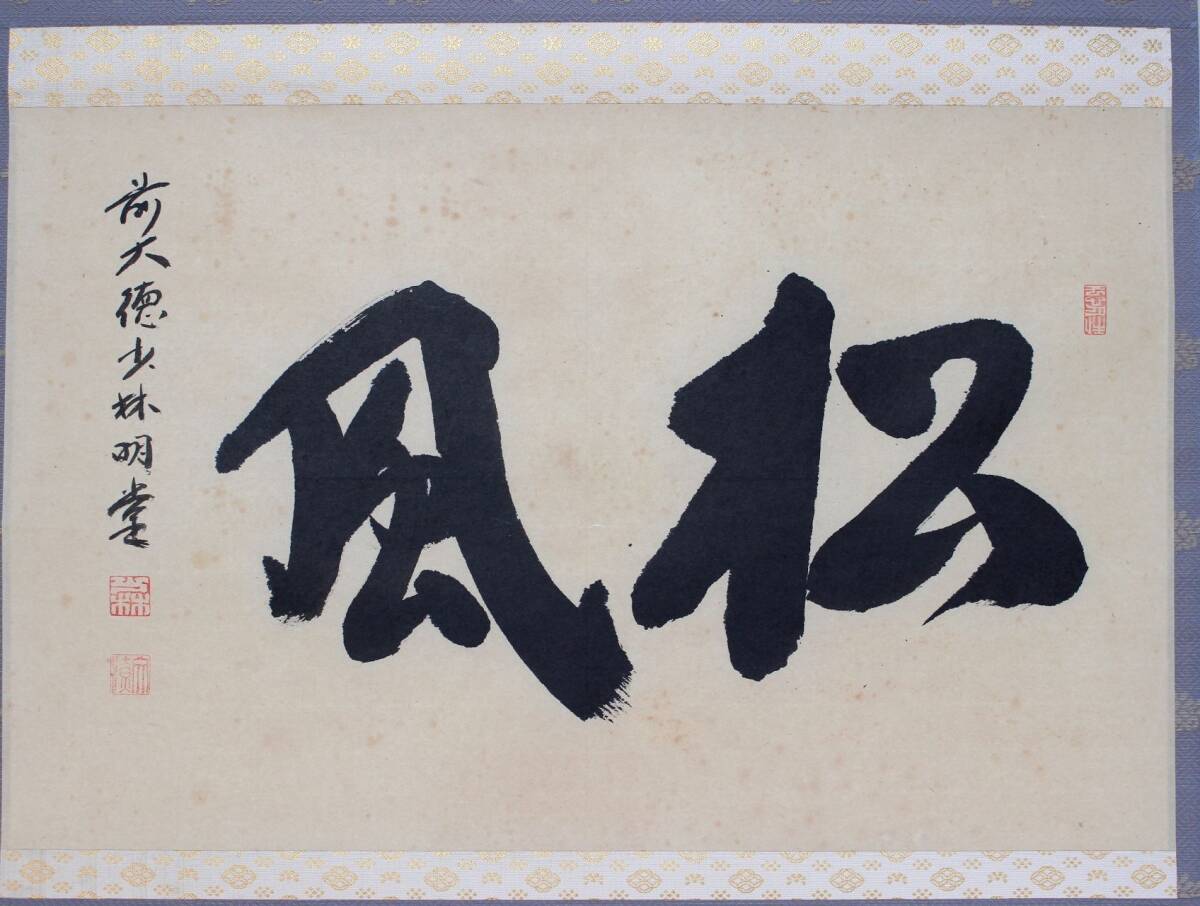 松風
前大徳少林明堂